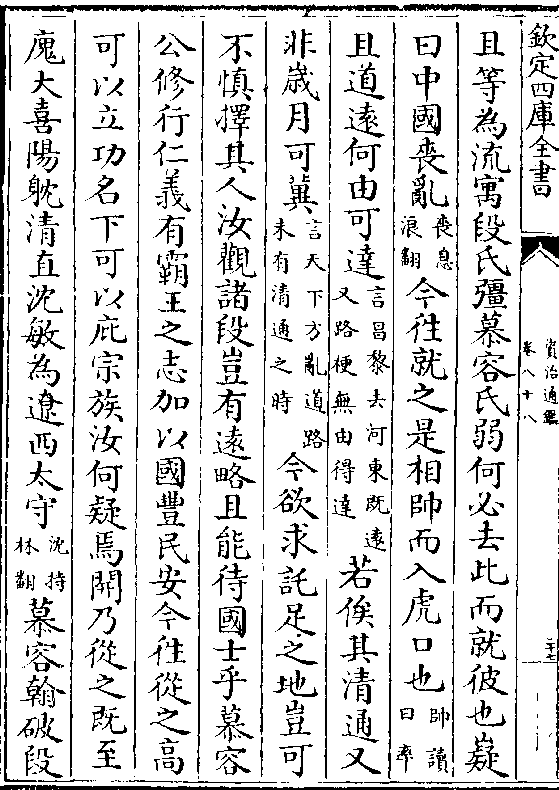 欽定四庫全書
資治通鑑
卷八十八
且等為流寓段氏彊慕容氏弱何必去此而就彼也嶷
曰中國喪亂喪息浪翻今往就之是相帥而入虎口也帥讀曰率
且道遠何由可達言昌黎去河東既遠又路梗無由得達若俟其清通又
非歲月可冀言天下方亂道路未有清通之時今欲求託足之地豈可
不慎擇其人汝觀諸段豈有遠略且能待國士乎慕容
公修行仁義有霸王之志加以國豐民安今徃從之高
可以立功名下可以庇宗族汝何疑焉開乃從之既至
廆大喜陽躭清直沈敏為遼西太守沈持林翻慕容翰破段